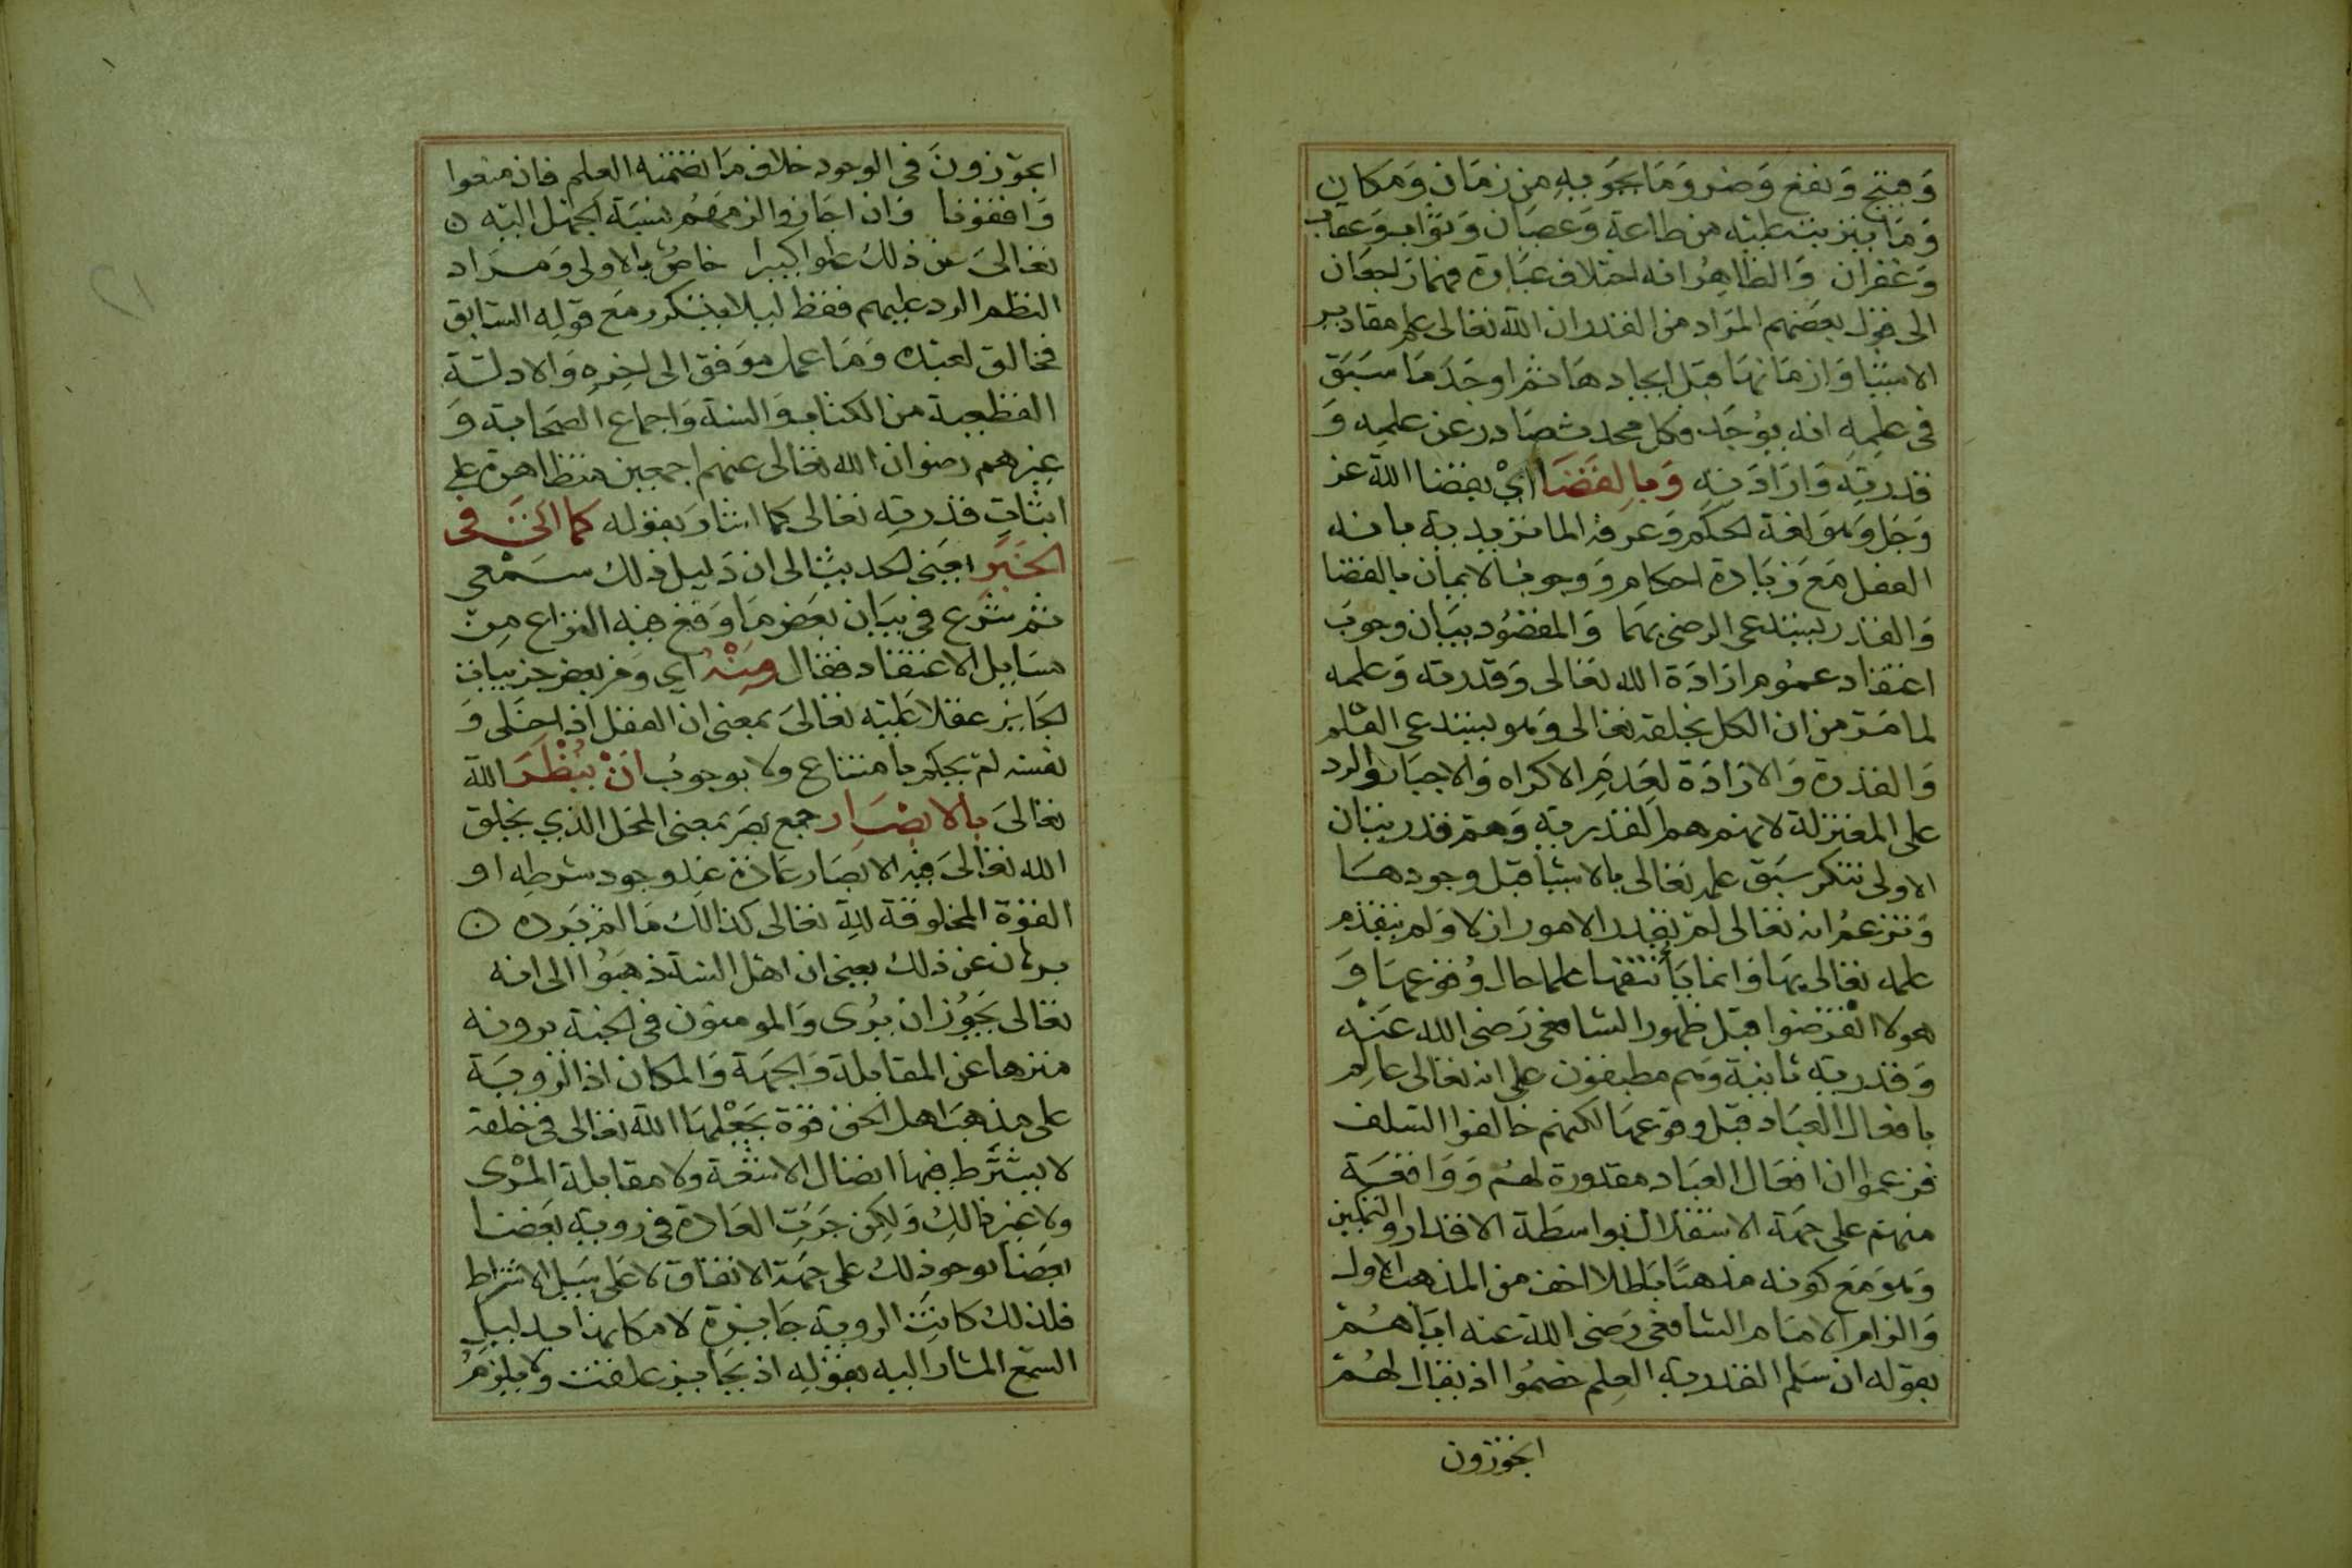 وقبيح ونفع وضر وما يحويه من زمان ومكان
وما يترتب عليه من طاعة وعصيان وثواب وعقاب
وغفران والظاهر انه اختلاف عبارة فهما راجعان
الى قول بعضهم المراد من القدر ان الله تعالى علم مقادير
الاشيا وازمانها قبل ايجادها ثم اوجد ما سبق
في علمه انه يوجد فكل محدث صادر عن علمه و
قدرته وارادته وبالقضا اي بقضا الله عز
وجل وهو لغة الحكم وعرفه الماتريدية بانه
الفعل مع زيادة احكام ووجوب الايمان بالقضا
والقدر يستدعي الرضى بهما والمقصود بيان وجوب
اعتقاد عموم ارادة الله تعالى وقدرته وعلمه
لما مر من ان الكل بخلقه تعالى وهو يستدعي العلم
والقدرة والارادة لعدم الاكراه والاجبار والرد
على المعتزلة لانهم هم القدرية وهم قدريتان
الاولى تنكر سبق علمه تعالى بالاشيا قبل وجودها
وتزعم انه تعالى لم يقدر الامور ازلا ولم يتقدم
علمه تعالى بها وانما يأتنفها علما حال وقوعها و
هولا انقرضوا قبل ظهور الشافعي رضى الله عنه
وقدرية ثانية وهم مطبقون على انه تعالى عالم
بافعال العباد قبل وقوعها لكنهم خالفوا السلف
فزعموا ان افعال العباد مقدورة لهم وواقعة
منهم على جهة الاستقلال بواسطة الاقدار والتمكين
وهو مع كونه مذهبًا باطلا اخف من المذهب الاول
والزام الامام الشافعي رضى الله عنه اياهم
بقوله ان سلم القدرية العلم خصموا اذ يقال لهم
ايجوزون
ايجوزون في الوجود خلاف ما تضمنه العلم فان منعوا
وافقونا وان اجازوا لزمهم نسبة الجهل اليه
تعالى عن ذلك علوا كبيرا خاص بالاولى ومراد
النظم الرد عليهم فقط ليلا يتكرر مع قوله السابق
فخالق لعبده وما عمل موفق الى اخره والادلة
القطعية من الكتاب والسنة واجماع الصحابة و
غيرهم رضوان الله تعالى عنهم اجمعين متظاهرة على
اثبات قدرته تعالى كما اشار بقوله كما اتى في
الخبر يعنى الحديث الى ان دليل ذلك سمعي
ثم شرع في بيان بعض ما وقع فيه النزاع من
مسايل الاعتقاد فقال ومنه اي ومن بعض جزييات
الجايز عقلا عليه تعالى بمعنى ان العقل اذا خلى و
نفسه لم يحكم بامتناع ولا بوجوب ان ينظر الله
تعالى بالابصار جمع بصر بمعنى المحل الذي يخلق
الله تعالى فيه الابصار عادة عند وجود شرطه او
القوة المخلوقة لله تعالى كذالك ما لم يرده
برهان عن ذلك يعني ان اهل السنة ذهبوا الى انه
تعالى يجوز ان يرى والمومنون في الجنة يرونه
منزها عن المقابلة والجهة والمكان اذ الروية
على مذهب اهل الحق قوة يجعلها الله تعالى في خلقه
لا يشترط فيها اتصال الاشعة ولا مقابلة المرى
ولا غير ذالك ولكن جرت العادة في روية بعضنا
بعضا بوجود ذلك على جهة الاتفاق لا على سبيل الاشتراط
فلذلك كانت الروية جايزة لامكانها بدليل
السمع المشار اليه بقوله اذ بجايز علقت ولا يلزم